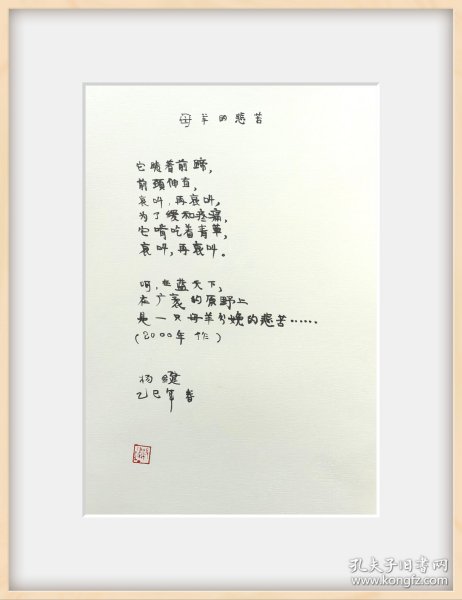 母羊的悲苦
它跪着前蹄，
前颈伸直，
哀叫，再哀叫，
为了缓和疼痛，
它啃吃着青草，
哀叫，再哀叫。
啊，在蓝天下，
在广袤的原野上
是一只母羊分娩的悲苦……
（2000年作）
杨键
乙巳年春
孔夫子旧书网
www.kongfz.com